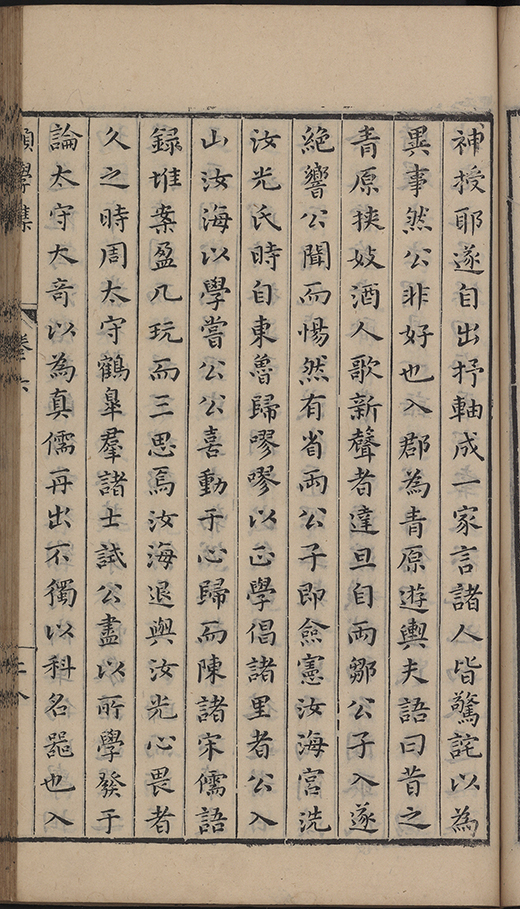 神授耶遂自出抒軸成一家言諸人皆驚詫以為
異事然公非好也入郡為青原遊輿夫語曰昔之
青原挾妓酒人歌新聲者達旦自兩鄒公子入遂
絕響公聞而惕然有省兩公子即僉憲汝海宮洗
汝光氏時自東魯歸嘐嘐以正學倡諸里者公入
山汝海以學嘗公公喜動于心歸而陳諸宋儒語
録堆案盈几玩而三思焉汝海退與汝光心畏者
久之時周太守鶴皐羣諸士試公盡以所學發于
論太守大奇以為真儒再出不獨以科名噐也入
願學集
卷六